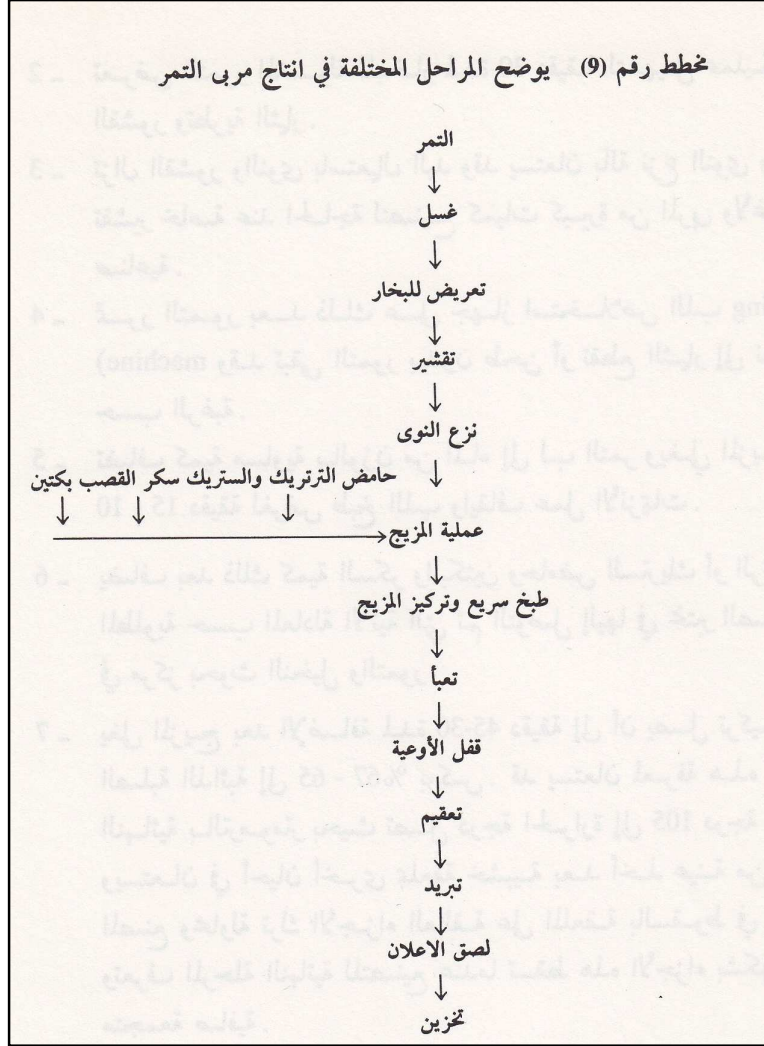 مخطط رقم (9) يوضح المراحل المختلفة في انتاج مربى التمر
التمر
غسل
تعريض للبخار
تقشير
نزع النوى
حامض الترتريك والستريك سكر القصب بكتين
عملية المزيج
طبخ سريع وتركيز المزيج
تعبأ
قفل الأوعية
تعقيم
تبريد
لصق الاعلان
تخزين